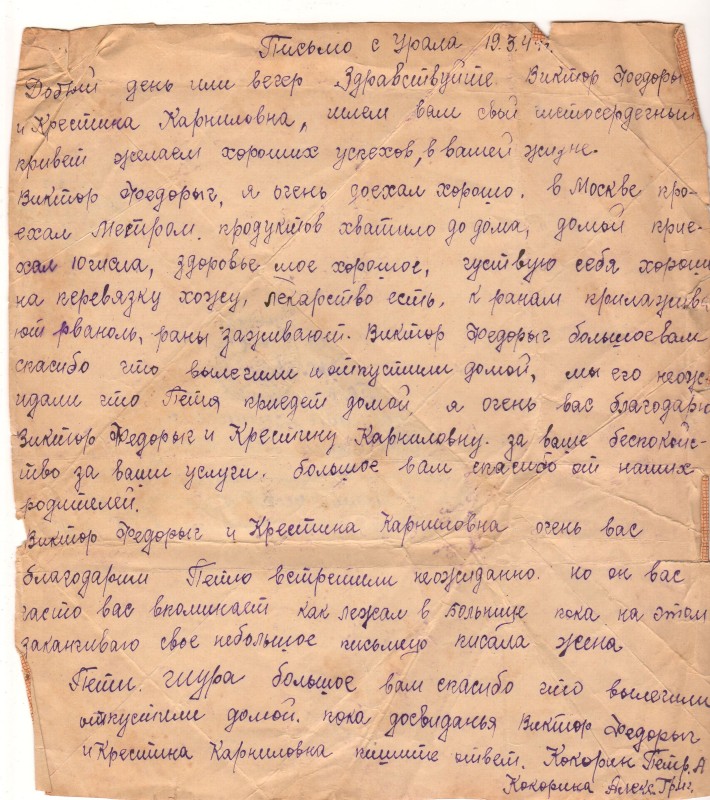 Письмо с Урала 19.3.4
Добый день или вечер Здравствуйте Виктор Федорыч
и Крестина Карниловна, шлем вам свой чистосердечный
привет желаем хороших успехов, в вашей жизне.
Виктор Федорыч, я очень доехал хорошо. в Москве про-
ехал Метром. продуктов хватило до дома, домой прие-
хал числа, здоровье мое хорошое, чуствую себя хорошо
на перевязку хожу, лекарство есть, к ранам прилажива
ют риваноль, раны заживают. Виктор Федорыч большое вам
спасибо что вылечили и отпустили домой, мы его неож-
идали что Петя приедет домой я очень вас благодарю
Виктор Федорыч и Крестину Карниловну. за ваше беспокой-
ство за ваши услуги. большое вам спасибо от наших
родителей.
Виктор Федорыч и Крестина Карниловна очень вас
благодарим Петю встретили неожиданно. но он вас
часто вас впоминает как лежал в больнице пока на этом
заканчиваю свое небольшое письмецо писала жена
Пети. Шура большое вам спасибо что вылечили
отпустили домой. пока досвиданья Виктор Федорыч
и Крестина Карниловна пишите ответ. Кокорин Петр. А
Кокорина Алекс. Григ.